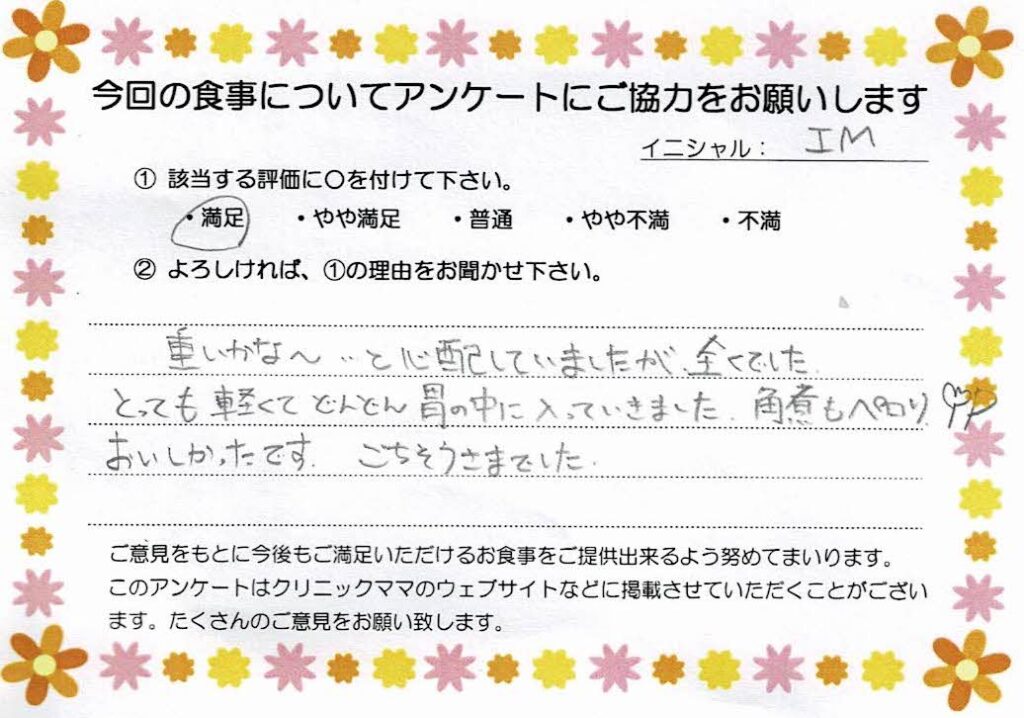 今回の食事についてアンケートにご協力をお願いします
イニシャル： IM
① 該当する評価に〇を付けて下さい。
・満足 ・やや満足 ・普通 ・やや不満 ・不満
② よろしければ、①の理由をお聞かせ下さい。
重いかな〜 ‥と心配していましたが、全くでした。
とっても軽くてどんどん胃の中に入っていきました。角煮もペロリ
おいしかったです。 ごちそうさまでした。
ご意見をもとに今後もご満足いただけるお食事をご提供出来るよう努めてまいります。
このアンケートはクリニックママのウェブサイトなどに掲載させていただくことがござい
ます。たくさんのご意見をお願い致します。